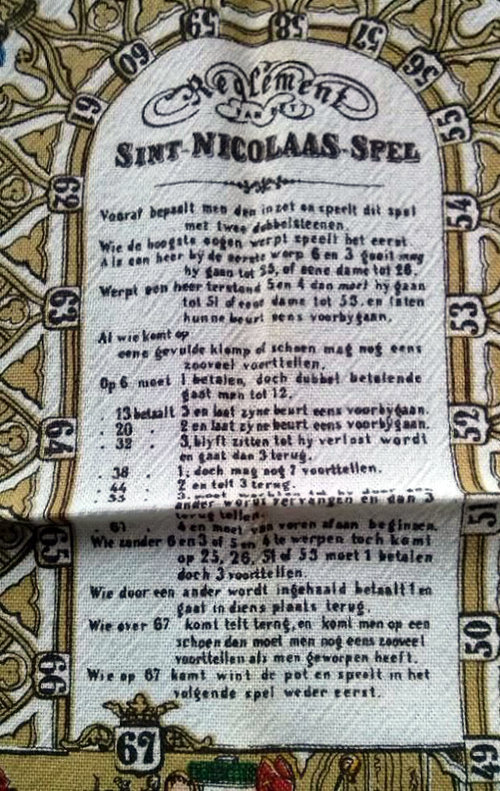 59
58
57
60
56
61
55
62
54
63
53
64
52
65
51
66
50
67
49
Reglement
VAN HET
SINT-NICOLAAS-SPEL
Vooraf bepaalt men den inzet en speelt dit spel
met twee dobbelsteenen.
Wie de hoogste oogen werpt speelt het eerst.
Als een heer by de eerste werp 6 en 3 gooit mag
hy gaan tot 53, of eene dame tot 26.
Werpt een heer terstond 5 en 4 dan moet hy gaan
tot 51 of eene dame tot 53. en laten
hunne beurt eens voorbygaan.
Al wie komt op
eene gevulde klomp of schoen mag nog eens
zooveel voorttellen.
Op 6 moet 1 betalen, doch dubbel betalende
gaat men tot 12.
. 13 betaalt 3 en laat zyne beurt eens voorbygaan.
. 20 . 2 en laat zyne beurt eens voorbygaan.
. 32 . 3, blyft zitten tot hy verlost wordt
en gaat dan 3 terug.
. 38 . 1, doch mag nog 7 voorttellen.
. 44 . 2 en telt 3 terug.
. 53 . 3, moet wachten tot hy door een
ander wordt vervangen en dan 3
terug tellen.
. 61 . 4 en moet van voren af aan beginnen.
Wie zonder 6 en 3 of 5 en 4 te werpen toch komt
op 25, 26, 51 of 53 moet 1 betalen
doch 3 voorttellen.
Wie door een ander wordt ingehaald betaalt 1 en
gaat in diens plaats terug.
Wie over 67 komt telt terug, en komt men op een
schoen dan moet men nog eens zooveel
voorttellen als men geworpen heeft.
Wie op 67 komt wint de pot en speelt in het
volgende spel weder eerst.